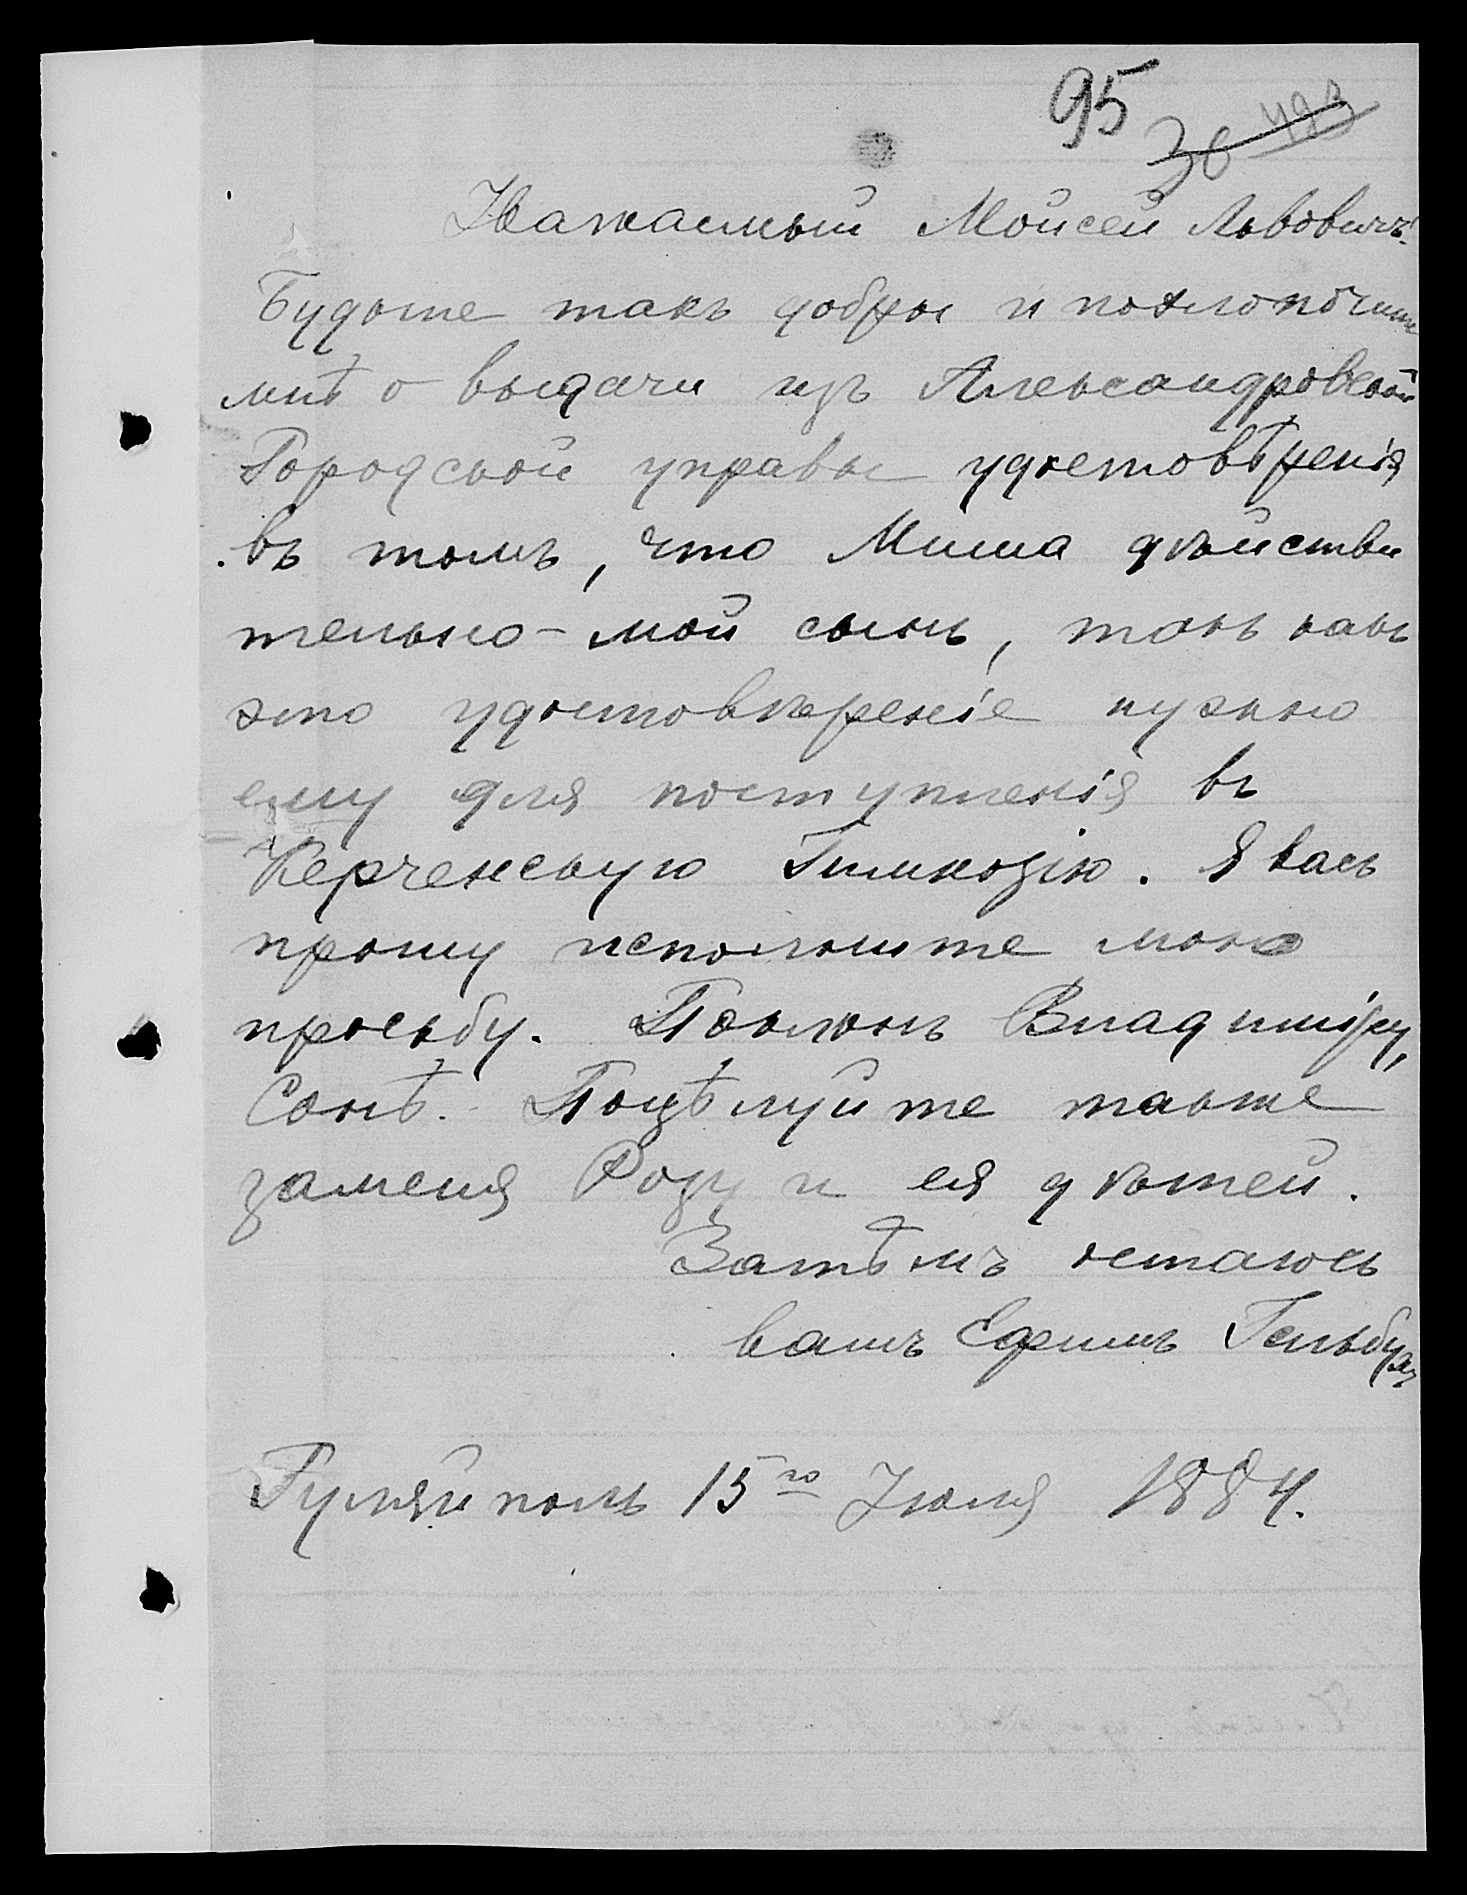 95
30 493
Уважаемый Мойсей Львовичъ!
Будьте такъ добры и похлопочите
мнѣ о выдачи изъ Александровской
Городской управы удостовѣренія
въ томъ, что Миша дѣйстви
тельно – мой сынъ, такъ какъ
это удостовѣреніе нужно
ему для поступленія въ
Керченскую Гимназію. Я васъ
прошу исполните мою
просьбу. Поклонъ Владиміру,
Сонѣ. Поцѣлуйте также
заменя Розу и ея дѣтей.
Затѣмъ остаюсь
вашъ Ефимъ
Гуляйполь 15го Іюля 1884.